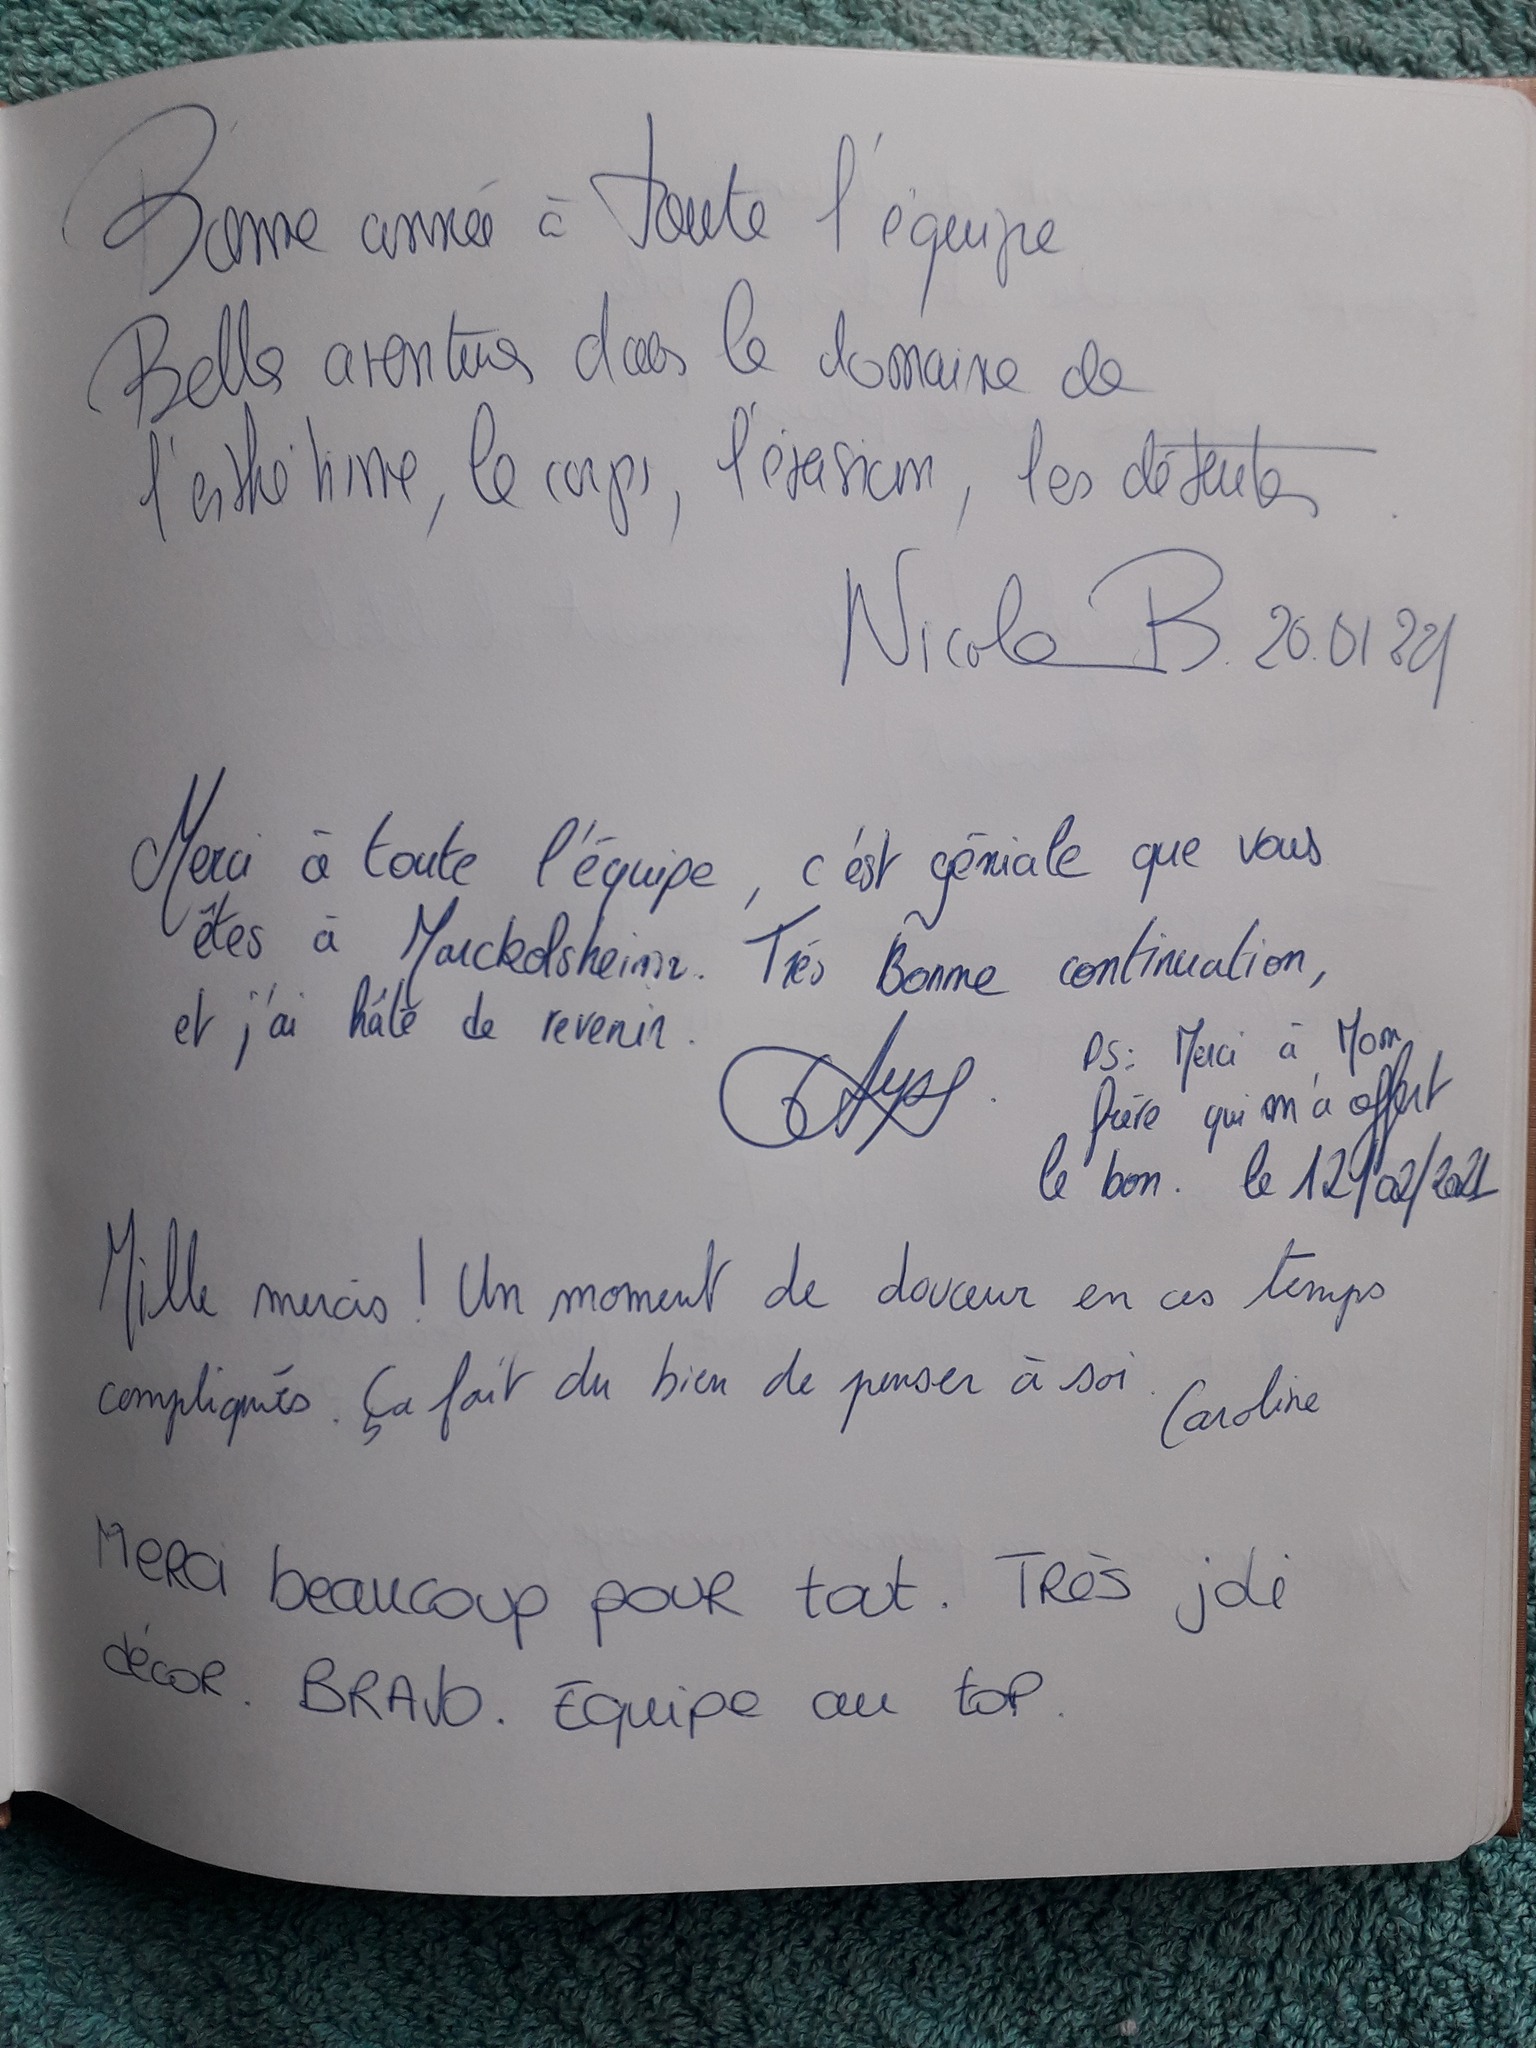 Bonne année à toute l'équipe
Belle aventure dans le domaine de
l'esthétisme, le corps, l'évasion, les détentes.
Nicole B. 20.01 21
Merci à toute l'équipe, c'est géniale que vous
êtes à Marckolsheim. Très Bonne continuation,
et j'ai hâte de revenir.
PS: Merci à Mon
frère qui m'a offert
le bon. le 12/02/2021
Mille mercis ! Un moment de douceur en ces temps
compliqués. Ça fait du bien de penser à soi.
Caroline
Merci beaucoup pour tout. Très joli
décor. BRAVO. Equipe au top.